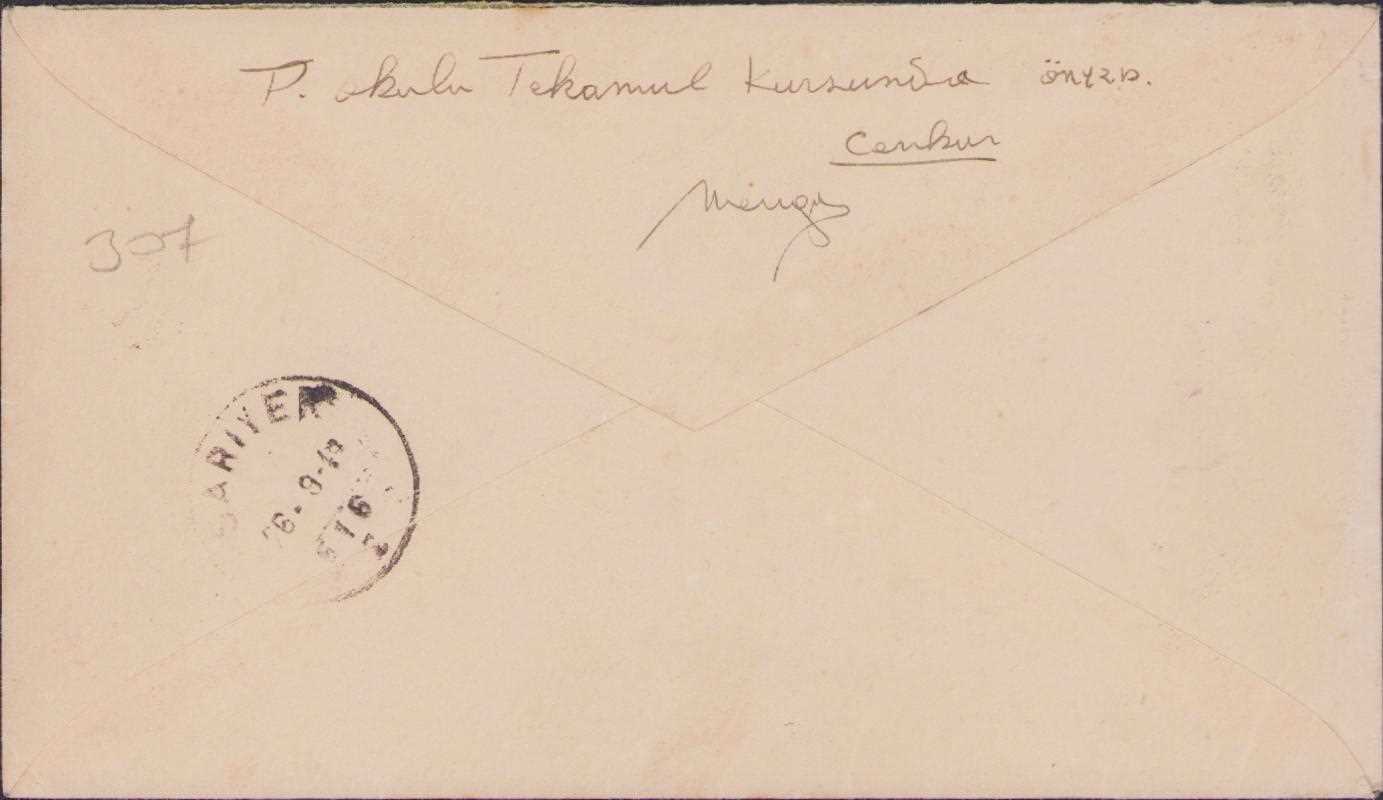 P. okulu Tekamul Kursunda önyzb.
Cenkur
307
SARIYER
6.-9-48
16